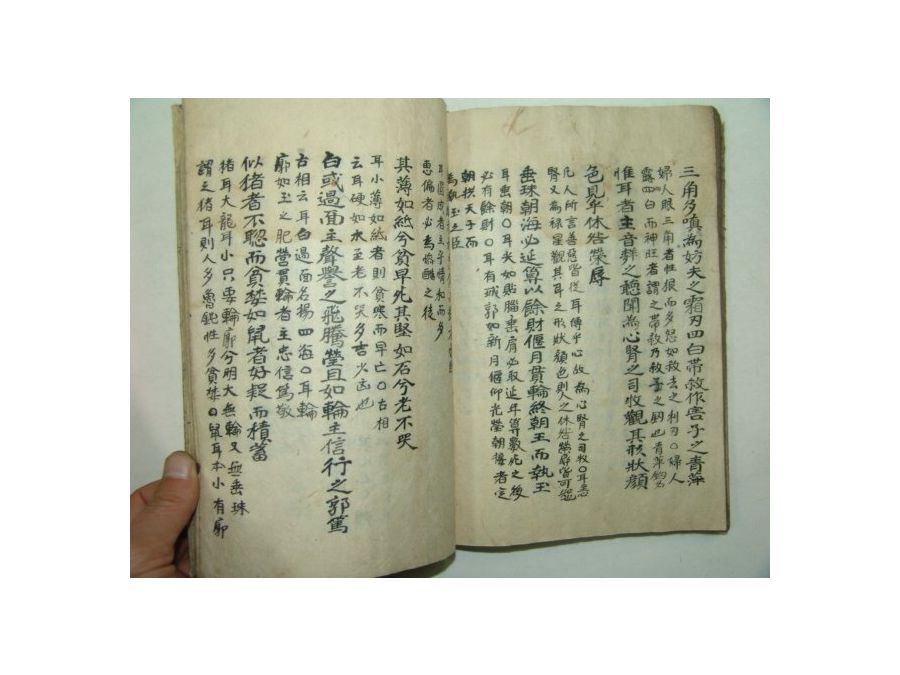 三角多嗔為妨夫之霜刃四白帶殺作害子之青萍
婦人眼三角者性狠而多怒如殺夫之利刃〇婦人
露四白而神旺者謂之帶殺乃殺子之釖也青萍釖名
惟耳者主音聲之聽聞為心腎之司牧觀其形狀顔
色見乎休咎榮辱
凡人所言善惡皆從耳傳乎心故為心腎之司牧〇耳為
腎又為禄星觀其耳之形狀顔色則人之休咎榮辱皆可
垂珠朝海必延算以餘財偃月貫輪終朝王而執玉
耳垂朝〇耳矢如貼腦垂肩必取延年算數死之後
必有餘財〇耳有城郭如新月偃仰光瑩朝接者定
朝拱天子而
為執玉之臣
惠偏者必為
其薄如紙兮貧早死其堅如石兮老不哭
耳小薄如紙者則貧寒而早亡〇古相
云耳硬如氷至老不哭多吉少凶也
白或過面主聲譽之飛騰瑩且如輪主信行之郭篤
古相云耳白過面名揚四海〇耳輪
廓如玉之肥瑩貫輪者主忠信篤敬
似猪者不聦而貪婪如鼠者好起而積蓄
猪耳大龍耳小只要輪廓兮明大無輪又無垂珠
謂之猪耳則人多魯鈍性多貪婪〇鼠耳本小有廓